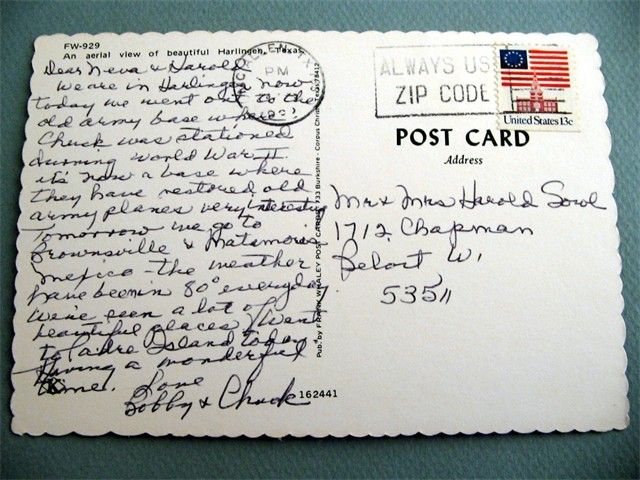 FW-929
An aerial view of beautiful Harlingen, Texas
Dear Neva & Harold
We are in Harlingen now
today we went out to the
old army base where
Chuck was stationed
durning World War II.
it's now a base where
they have restored old
army planes very interesting
Tomorrow we go to
Brownsville & Matamoros,
Mexico - the weather
have been in 80° everyday
We've seen a lot of
beautiful places. Went
to Padre Island today.
Having a wonderful
time. Love
Bobby & Chuck
162441
Pub. by FRANK WHALEY POST CARDS, Burkshire - Corpus Christi, Texas
McALLEN, TX
PM
ALWAYS US
ZIP CODE
United States 13c
POST CARD
Address
Mr & Mrs Harold
1712 Chapman
Beloit Wi
53511